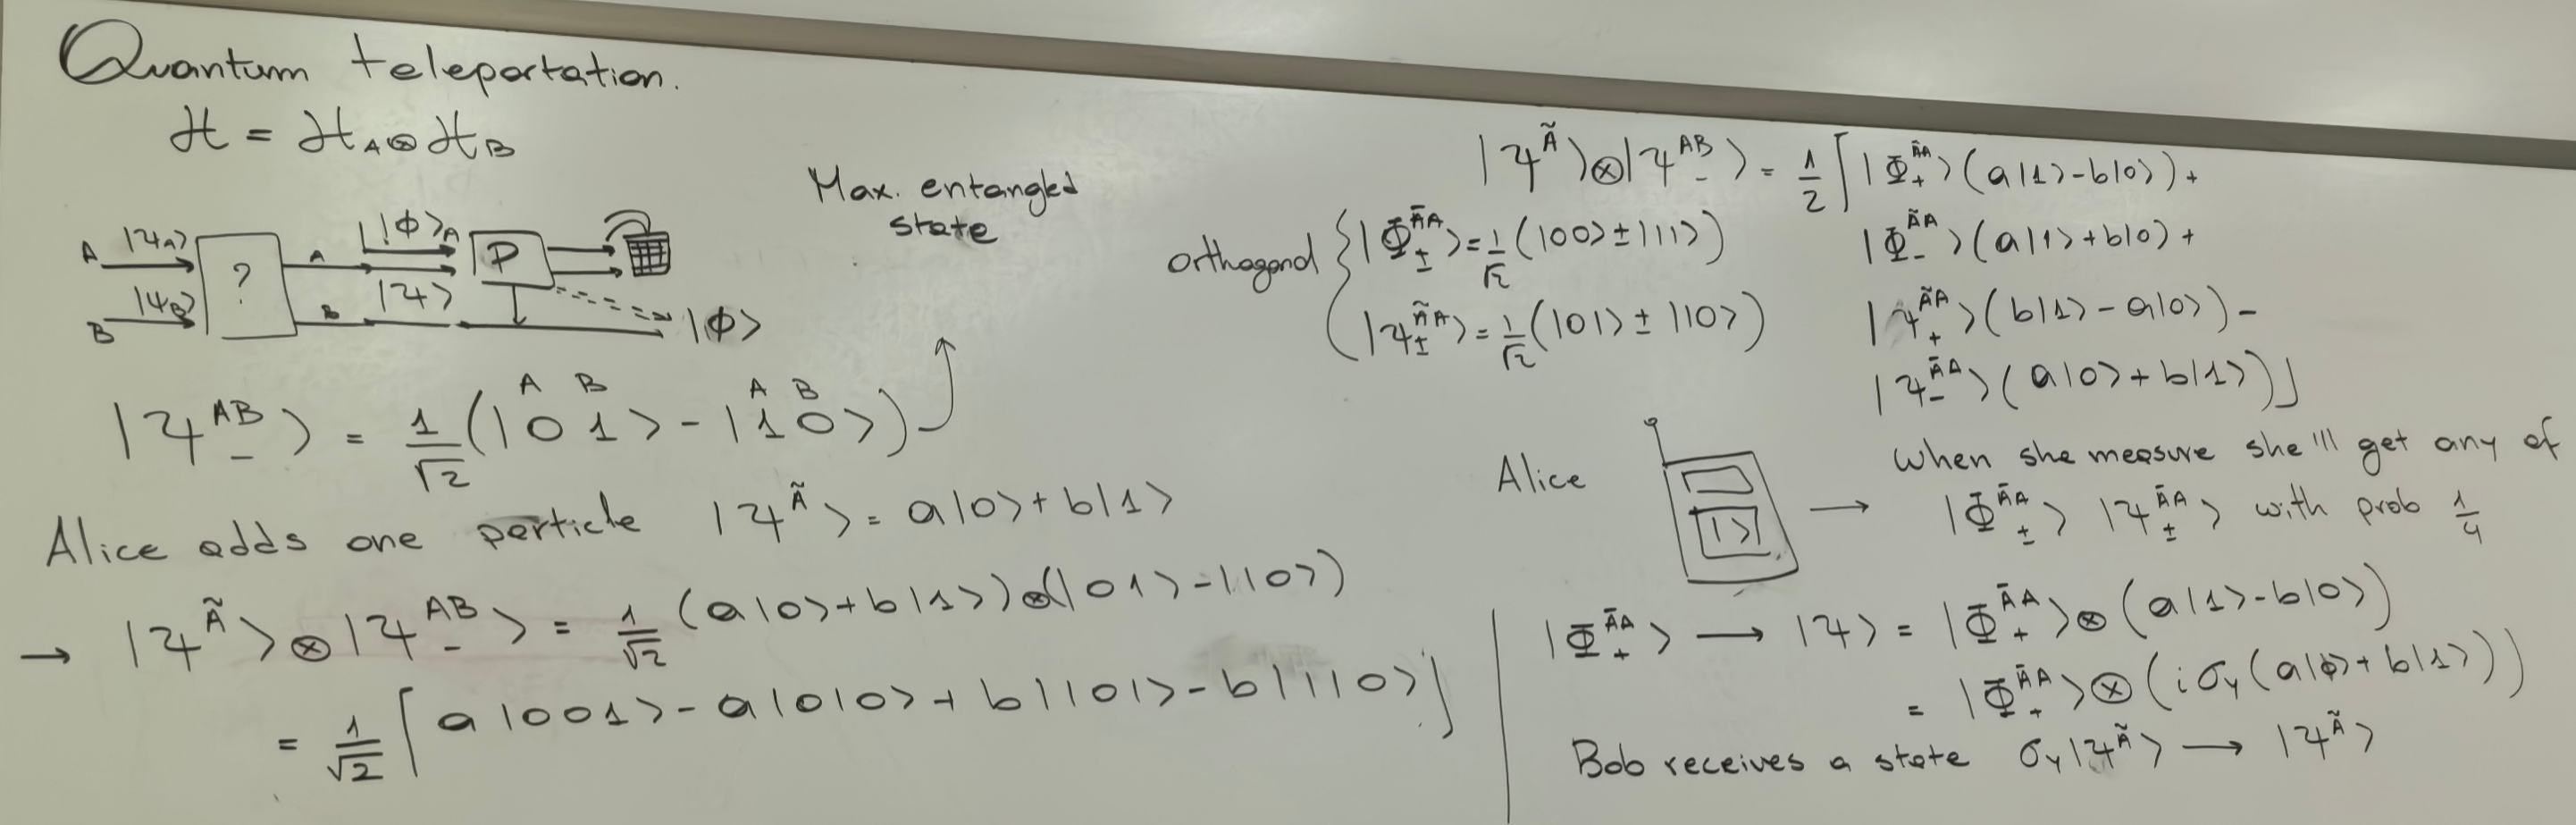 Quantum teleportation.
ℋ = ℋ_A⊗ℋ_B
Max. entangled
state
A |ψ_A> ? A |ϕ>_A P
B |ψ_B> B |ψ> |ϕ>
A B A B
|ψ_-^{AB}> = 1/√2 (|0 1> - |1 0>)
Alice adds one particle |ψ^Ã> = a|0>+b|1>
→ |ψ^Ã>⊗|ψ_-^{AB}> = 1/√2 (a|0>+b|1>)⊗(|01>-|10>)
= 1/√2 [a|001>-a|010>+b|101>-b|110>]
|ψ^Ã>⊗|ψ_-^{AB}> = 1/2 [|Φ_+^{ÃA}>(a|1>-b|0>)+
|Φ_-^{ÃA}>(a|1>+b|0>)+
|ψ_+^{ÃA}>(b|1>-a|0>)-
|ψ_-^{ÃA}>(a|0>+b|1>)]
orthogonal { |Φ_±^{ÃA}> = 1/√2 (|00>±|11>)
|ψ_±^{ÃA}> = 1/√2 (|01>±|10>)
Alice |> → When she measure she'll get any of
|Φ_±^{ÃA}> |ψ_±^{ÃA}> with prob 1/4
|Φ_+^{ÃA}> → |ψ> = |Φ_+^{ÃA}>⊗(a|1>-b|0>)
= |Φ_+^{ÃA}>⊗(iσ_y(a|0>+b|1>))
Bob receives a state σ_y|ψ^Ã> → |ψ^Ã>